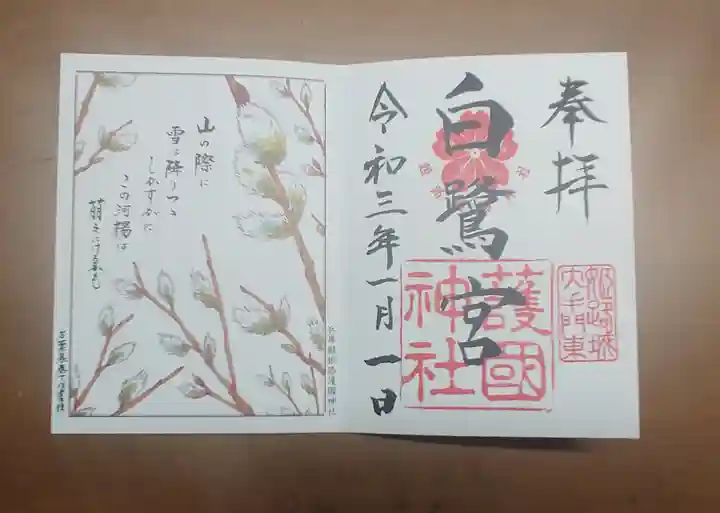 奉拝
姫路城
大手門東
白鷺宮
護國
神社
令和三年一月一日
山の際に
雪は降りつつ
しかすがに
この河楊は
萌えにけるかも
兵庫縣姫路護國神社